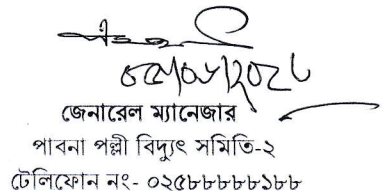 জেনারেল ম্যানেজার
পাবনা পল্লী বিদ্যুৎ সমিতি-২
টেলিফোন নং- ০২৫৮৮৮৮৮১৮৮